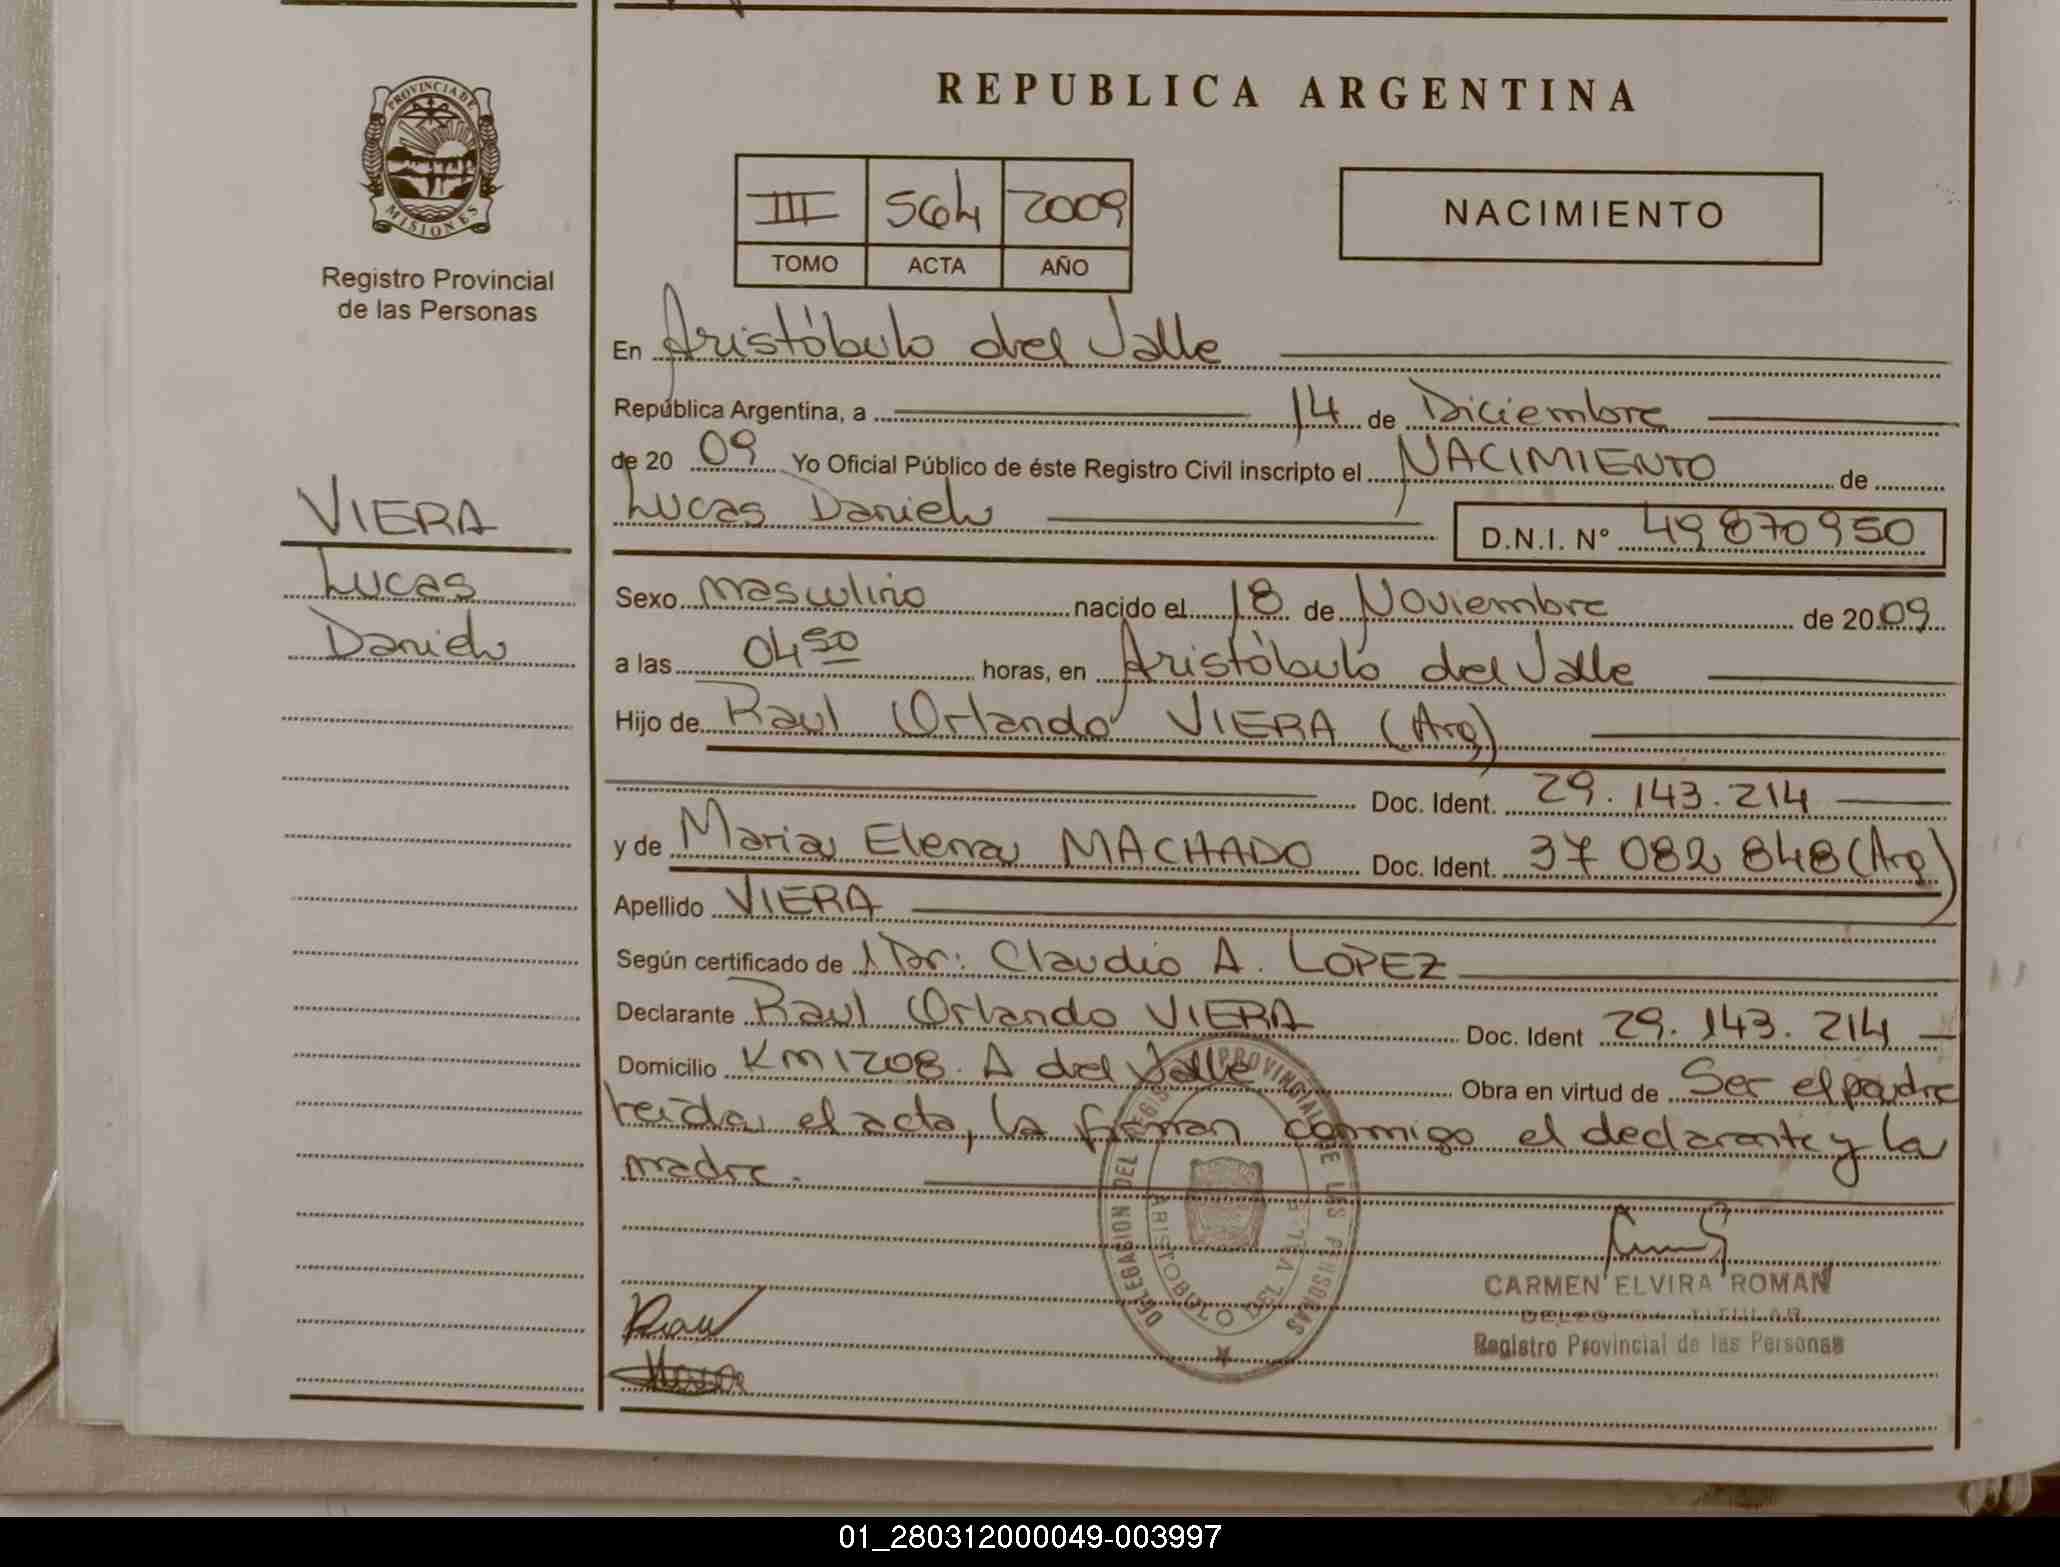 REPUBLICA ARGENTINA
PROVINCIA DE
MISIONES
Registro Provincial
de las Personas
III 564 2009
TOMO ACTA AÑO
NACIMIENTO
En Aristóbulo del Valle
República Argentina, a 14 de Diciembre
de 20 09 Yo Oficial Público de éste Registro Civil inscripto el NACIMIENTO de
Lucas Daniel D.N.I. Nº 49870950
VIERA
Lucas
Daniel
Sexo masculino nacido el 18 de Noviembre de 20 09
a las 04 50 horas, en Aristóbulo del Valle
Hijo de Raul Orlando VIERA (Arg)
Doc. Ident. 29.143.214
y de Maria Elena MACHADO Doc. Ident. 37 082 848 (Arg)
Apellido VIERA
Según certificado de Dr: Claudio A. LOPEZ
Declarante Raul Orlando VIERA Doc. Ident 29.143.214
Domicilio Km 1208. A del Valle Obra en virtud de Ser el padre
leida el acta, la firman conmigo el declarante y la
madre.
DELEGACION DEL REGISTRO PROVINCIAL DE LAS PERSONAS
ARISTOBULO DEL VALLE
CARMEN ELVIRA ROMAN
DELEGADA TITULAR
Registro Provincial de las Personas
01_280312000049-003997